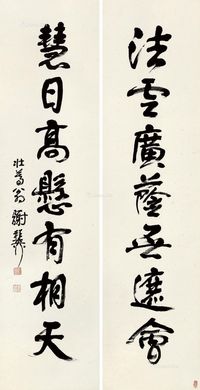 法雲廣蔭無遮會
慧日高懸有相天
壮暮翁謝稚柳